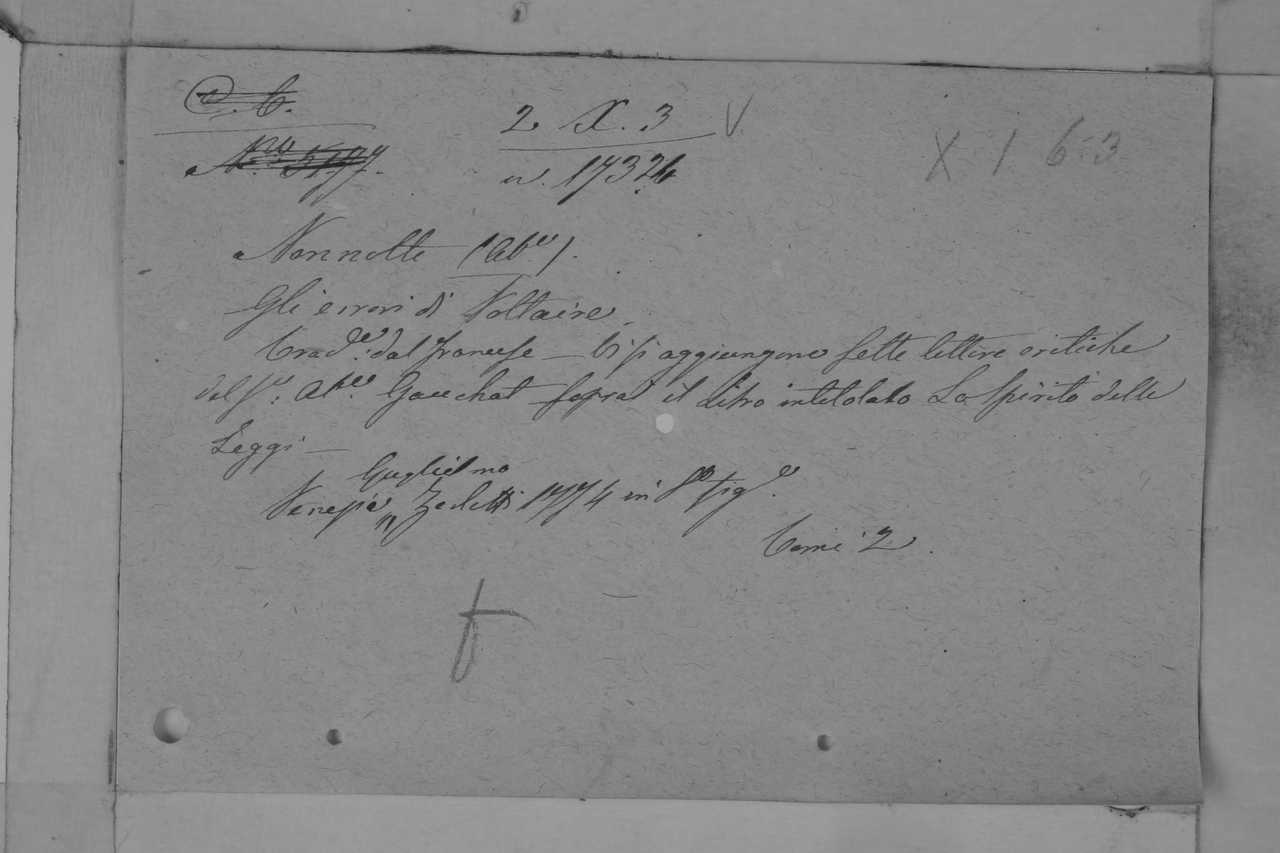 C. C.
N.ro 5197.
2 X. 3 V
n. 17324
X 1 6 3
Nonnotte (Ab.e).
Gli errori di Voltaire.
Trad.e dal francese — Vi si aggiungono sette lettere critiche
del S.r Ab.e Gauchat sopra il libro intitolato Lo Spirito delle
Leggi —
Guglielmo
Venezia Zerletti 1774 in 8.o fig.e
Tomi 2.
f